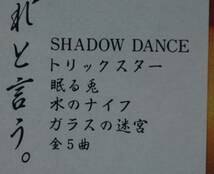 れと言う。
SHADOW DANCE
トリックスター
眠る兎
水のナイフ
ガラスの迷宮
全5曲